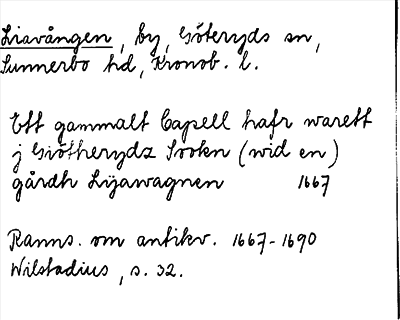 Liavången, by, Göteryds sn,
Sunnerbo hd, Kronob. l.
Ett gammalt Capell hafr warett
j Giötherydz Sookn (wid en)
gårdh Lijawagnen 1667
Ranns. om antikv. 1667-1690
Wilstadius, s. 32.